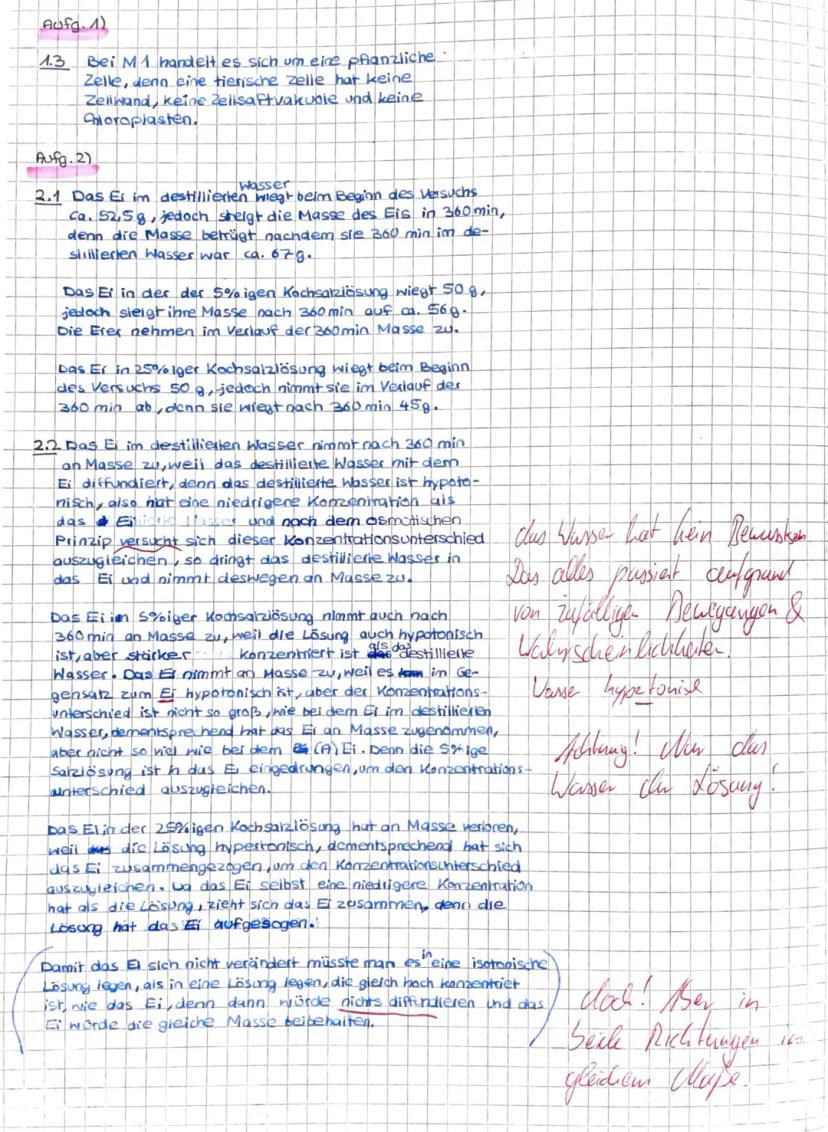 Aufg. 1)
1.3 Bei M1 handelt es sich um eine pflanzliche
Zelle, denn eine tierische Zelle hat keine
Zellwand, keine Zellsaftvakuole und keine
Chloroplasten.
Aufg. 2)
Wasser
2.1 Das Ei im destillierten wiegt beim Beginn des Versuchs
ca. 52,5g, jedoch steigt die Masse des Eis in 360min,
denn die Masse beträgt nachdem sie 360 min im de-
stillierten Wasser war ca. 67g.
Das Ei in der der 5%igen Kochsalzlösung wiegt 50 g,
jedoch steigt ihre Masse nach 360min auf ca. 56g.
Die Eier nehmen im Verlauf der 360min Masse zu.
Das Ei in 25%iger Kochsalzlösung wiegt beim Beginn
des Versuchs 50 g, jedoch nimmt sie im Verlauf der
360 min ab, denn sie wiegt nach 360min 45g.
2.2 Das Ei im destillierten Wasser nimmt nach 360 min
an Masse zu, weil das destillierte Wasser mit dem
Ei diffundiert, denn das destillierte Wasser ist hypoto-
nisch, also hat eine niedrigere Konzentration als
das Ei und nach dem osmotischen
Prinzip versucht sich dieser Konzentrationsunterschied
auszugleichen, so dringt das destillierte Wasser in
das Ei und nimmt deswegen an Masse zu.
das Wasser hat kein Bewusstsein
Das alles passiert aufgrund
von zufälligen Bewegungen &
Wahrscheinlichkeiten.
Das Ei in 5%iger Kochsalzlösung nimmt auch nach
360min an Masse zu, weil die Lösung auch hypotonisch
ist, aber stärker konzentriert ist als das destillierte
Wasser. Das Ei nimmt an Masse zu, weil es im Ge-
gensatz zum Ei hypotonisch ist, aber der Konzentrations-
unterschied ist nicht so groß, wie bei dem Ei im destillierten
Wasser, dementsprechend hat das Ei an Masse zugenommen,
aber nicht so viel wie bei dem (A) Ei. Denn die 5%ige
Salzlösung ist in das Ei eingedrungen, um den Konzentrations-
unterschied auszugleichen.
hypotonisch
Achtung! Nur das
Wasser der Lösung!
Das Ei in der 25%igen Kochsalzlösung hat an Masse verloren,
weil die Lösung hypertonisch, dementsprechend hat sich
das Ei zusammengezogen, um den Konzentrationsunterschied
auszugleichen. Da das Ei selbst eine niedrigere Konzentration
hat als die Lösung, zieht sich das Ei zusammen, denn die
Lösung hat das Ei aufgesogen.
Damit das Ei sich nicht verändert müsste man es in eine isotonische
Lösung legen, als in eine Lösung legen, die gleich hoch konzentriet
ist, wie das Ei, denn dann würde nichts diffundieren und das
Ei würde die gleiche Masse beibehalten.
doch! Aber in
beide Richtungen im
gleichen Maße.